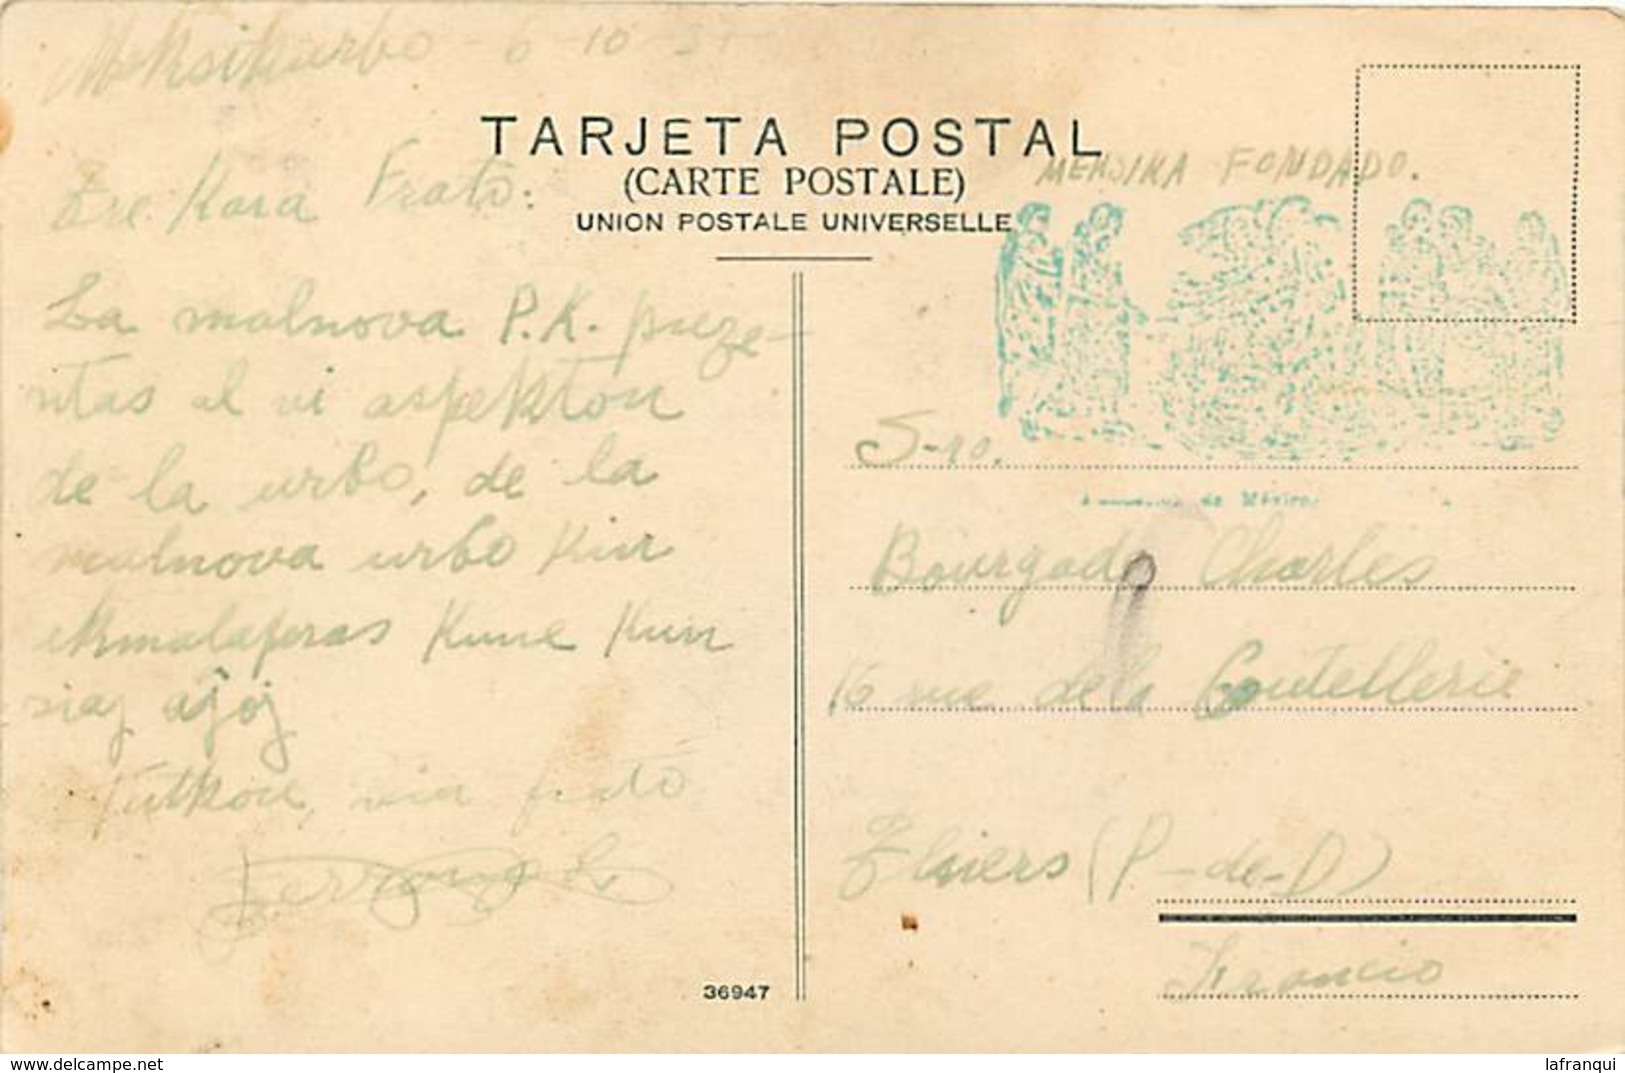 Meksikurbo - 6-10-31
TARJETA POSTAL
(CARTE POSTALE)
UNION POSTALE UNIVERSELLE
MEKSIKA FONDADO.
Tre Kara Frato:
La malnova P.K. preze-
ntas al vi aspekton
de la urbo, de la
malnova urbo kiu
ekmalaperas kune kun
siaj aĵoj
Tutkore, via frato
S-ro.
de México
Bourgade Charles
16 rue de la Coutellerie
Thiers (P-de-D)
Francio
36947
delcampe.net
lafranqui